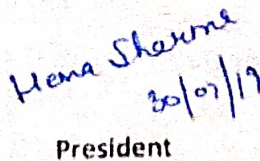 Hema Sharma
30/07/19
President